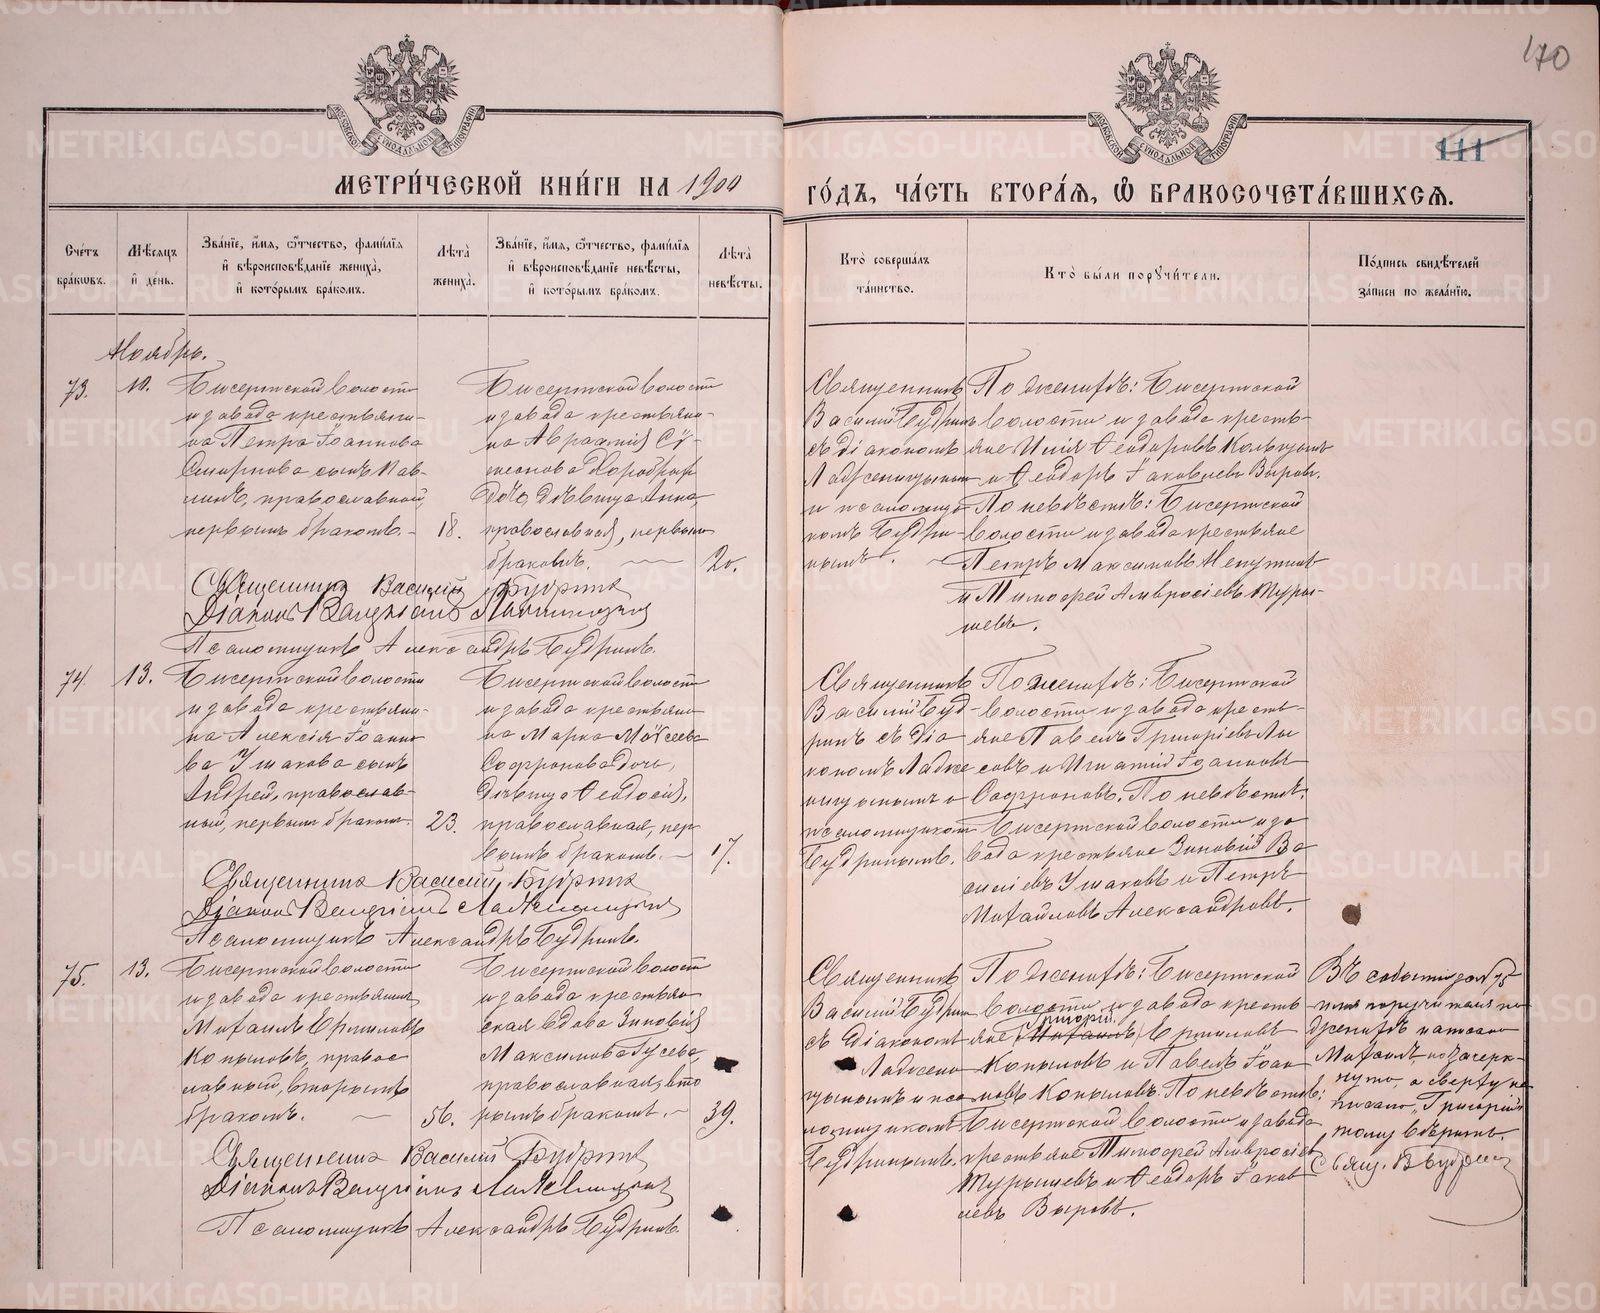 170
111
МЕТРИ́ЧЕСКОЙ КНИ́ГИ НА 1900
ГО́ДЪ, ЧА́СТЬ ВТОРА́Я, Ѡ БРАКОСОЧЕТА́ВШИХСЯ.
Сче́тъ бра́кωвъ.
Мѣ́сяцъ и де́нь.
Зва́нїе, и́мя, ѻ́тчество, фами́лїя и вѣроисповѣ́данїе жениха̀, и кото́рымъ бра́комъ.
Лѣ́та жениха̀.
Зва́нїе, и́мя, ѻ́тчество, фами́лїя и вѣроисповѣ́данїе невѣ́сты, и кото́рымъ бра́комъ.
Лѣ́та невѣ́сты.
Кто̀ соверша́лъ та́инство.
Кто̀ бы́ли порꙋчи́тели.
По́дпись свидѣ́телей за́писи по жела́нїю.
Ноябрь.
73.
10.
Бисертской волости
и завода крестьяни-
на Петра Іоаннова
Смирнова сынъ Пав-
линъ, православный,
первымъ бракомъ. 18.
Бисертской волости
и завода крестьяни-
на Авраамія Си-
меонова
дочь, дѣвица Анна,
православная, первымъ
бракомъ. 20.
Священникъ
Василій Будрин
съ діакономъ
Ладженицынымъ
и псаломщи-
комъ Будри-
нымъ.
По женихѣ: Бисертской
волости и завода кресть-
яне Илія Ѳеодоровъ
и Ѳеодоръ Іаковлевъ Выровъ.
По невѣстѣ: Бисертской
волости и завода крестьяне
Петръ Максимовъ
и Тимофей Амвросіевъ Туры-
шевъ.
Священникъ Василій Будринъ
Діаконъ Валеріанъ
Псаломщикъ Александръ Будринъ.
74.
13.
Бисертской волости
и завода крестьяни-
на Алексія Іоанно-
ва Ушакова сынъ
Андрей, православ-
ный, первымъ бракомъ. 23.
Бисертской волости
и завода крестьяни-
на Марка Моѵсеева
Софронова дочь,
дѣвица Ѳеодосія,
православная, пер-
вымъ бракомъ. 17.
Священникъ
Василій Буд-
ринъ съ діа-
кономъ Ладже-
ницынымъ и
псаломщикомъ
Будринымъ.
По женихѣ: Бисертской
волости и завода кресть-
яне Павелъ Григорієвъ Лы-
совъ и Игнатій Іоанновъ
Софроновъ. По невѣстѣ:
Бисертской волости и за-
вода крестьяне Зиновій Ва-
силіевъ Ушаковъ и Петръ
Михайловъ Александровъ.
Священникъ Василій Будринъ
Діаконъ Валеріанъ
Псаломщикъ Александръ Будринъ.
75.
13.
Бисертской волости
и завода крестьянинъ
Михаилъ Ермиловъ
Копыловъ, право-
славный, вторымъ
бракомъ. 56.
Бисертской волости
и завода крестьян-
ская вдова Зиновія
Максимова Гусева,
православная, вто-
рымъ бракомъ. 39.
Священникъ
Василій Будрин
съ діакономъ
Ладжени-
цынымъ и пса-
ломщикомъ
Будринымъ.
По женихѣ: Бисертской
волости и завода кресть-
Григорій
яне Михаилъ Ермиловъ
Копыловъ и Павелъ Іоан-
новъ Копыловъ. По невѣстѣ:
Бисертской волости и завода
крестьяне Тимофей Амвросіевъ
Турышевъ и Ѳеодоръ Іаков-
левъ Выровъ.
Въ событіи за № 75
имя поручителя по
женихѣ написано
Михаилъ зачерк-
нуто, а сверху на-
писано „Григорій“
тому вѣримъ.
Свящ. В. Будринъ
Священникъ Василій Будринъ
Діаконъ Валеріанъ
Псаломщикъ Александръ Будринъ.
METRIKI.GASO-URAL.RU